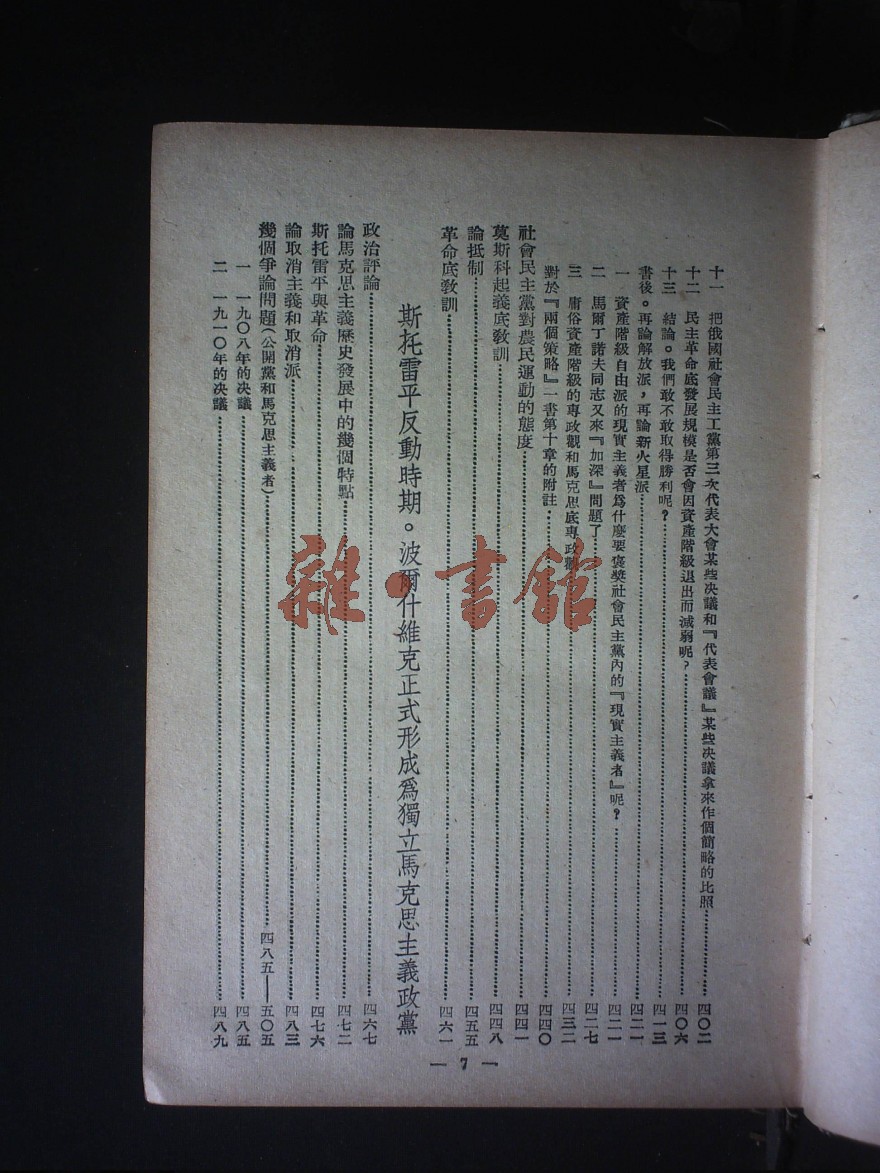 十一　把俄國社會民主工黨第三次代表大會某些决議和『代表會議』某些决議拿來作個簡略的比照……四〇二
十二　民主革命底發展規模是否會因資產階級退出而減弱呢？……四〇六
十三　結論。我們敢不敢取得勝利呢？……四一三
書後。再論解放派，再論新火星派……四二一
一　資產階級自由派的現實主義者爲什麼要褒獎社會民主黨內的『現實主義者』呢？……四二一
二　馬爾丁諾夫同志又來『加深』問題了……四二七
三　庸俗資產階級的專政觀和馬克思底專政觀……四三二
對於『兩個策略』一書第十章的附註……四四〇
社會民主黨對農民運動的態度……四四一
莫斯科起義底敎訓……四四八
論抵制……四五五
革命底敎訓……四六一
斯托雷平反動時期。波爾什維克正式形成爲獨立馬克思主義政黨
政治評論……四六七
論馬克思主義歷史發展中的幾個特點……四七二
斯托雷平與革命……四七六
論取消主義和取消派……四八三
幾個爭論問題（公開黨和馬克思主義者）……四八五——五〇五
一　一九〇八年的决議……四八五
二　一九一〇年的决議……四八九
— 7 —
雜·書館